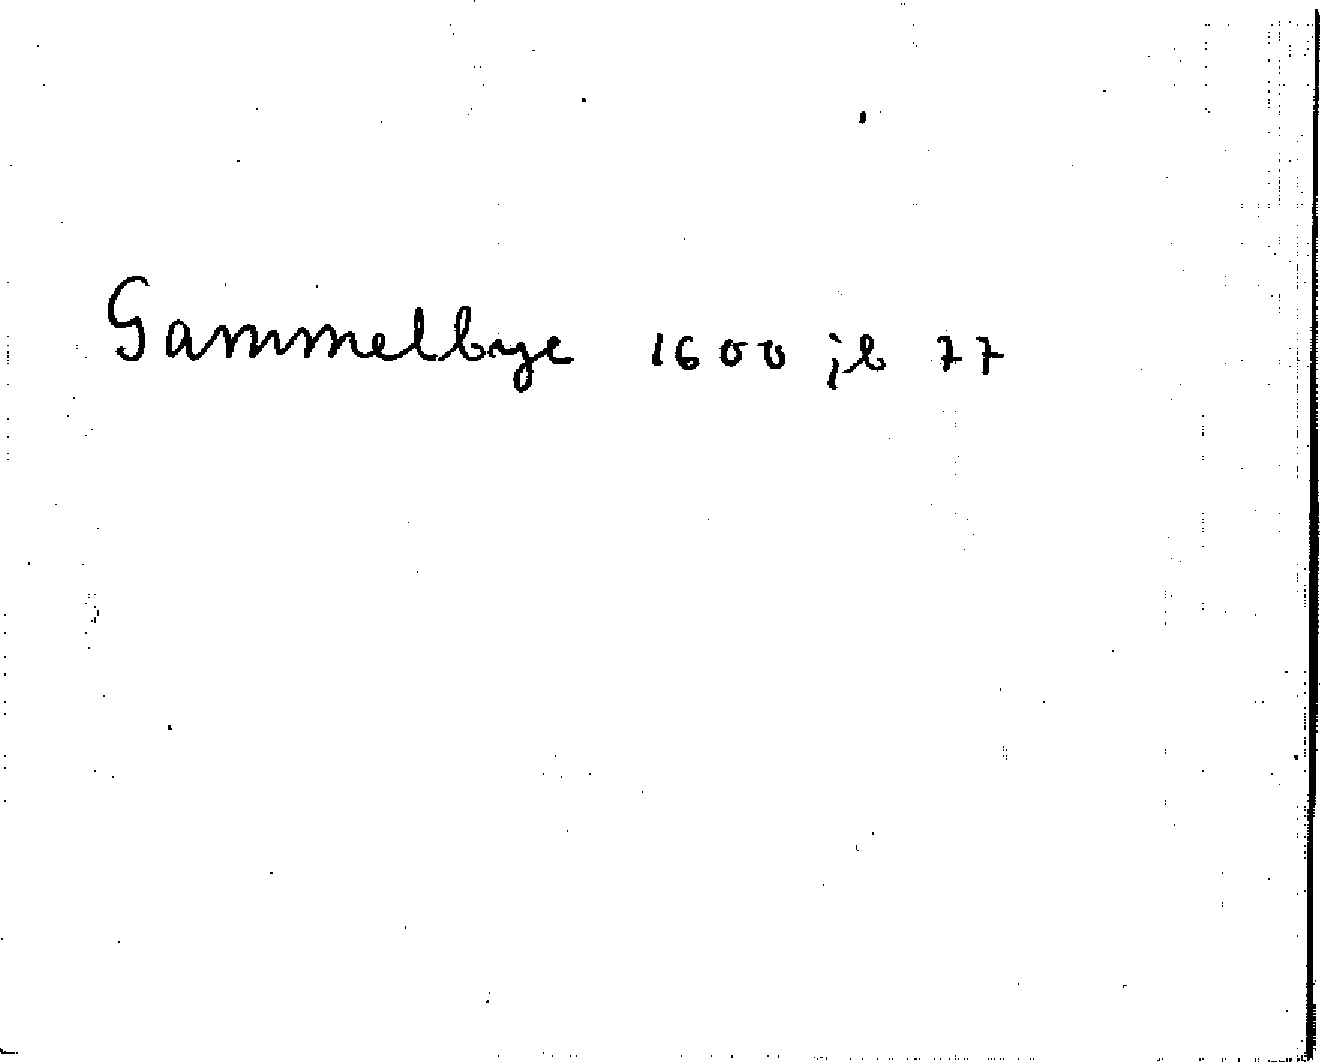 Gammelbye 1600 jb 77